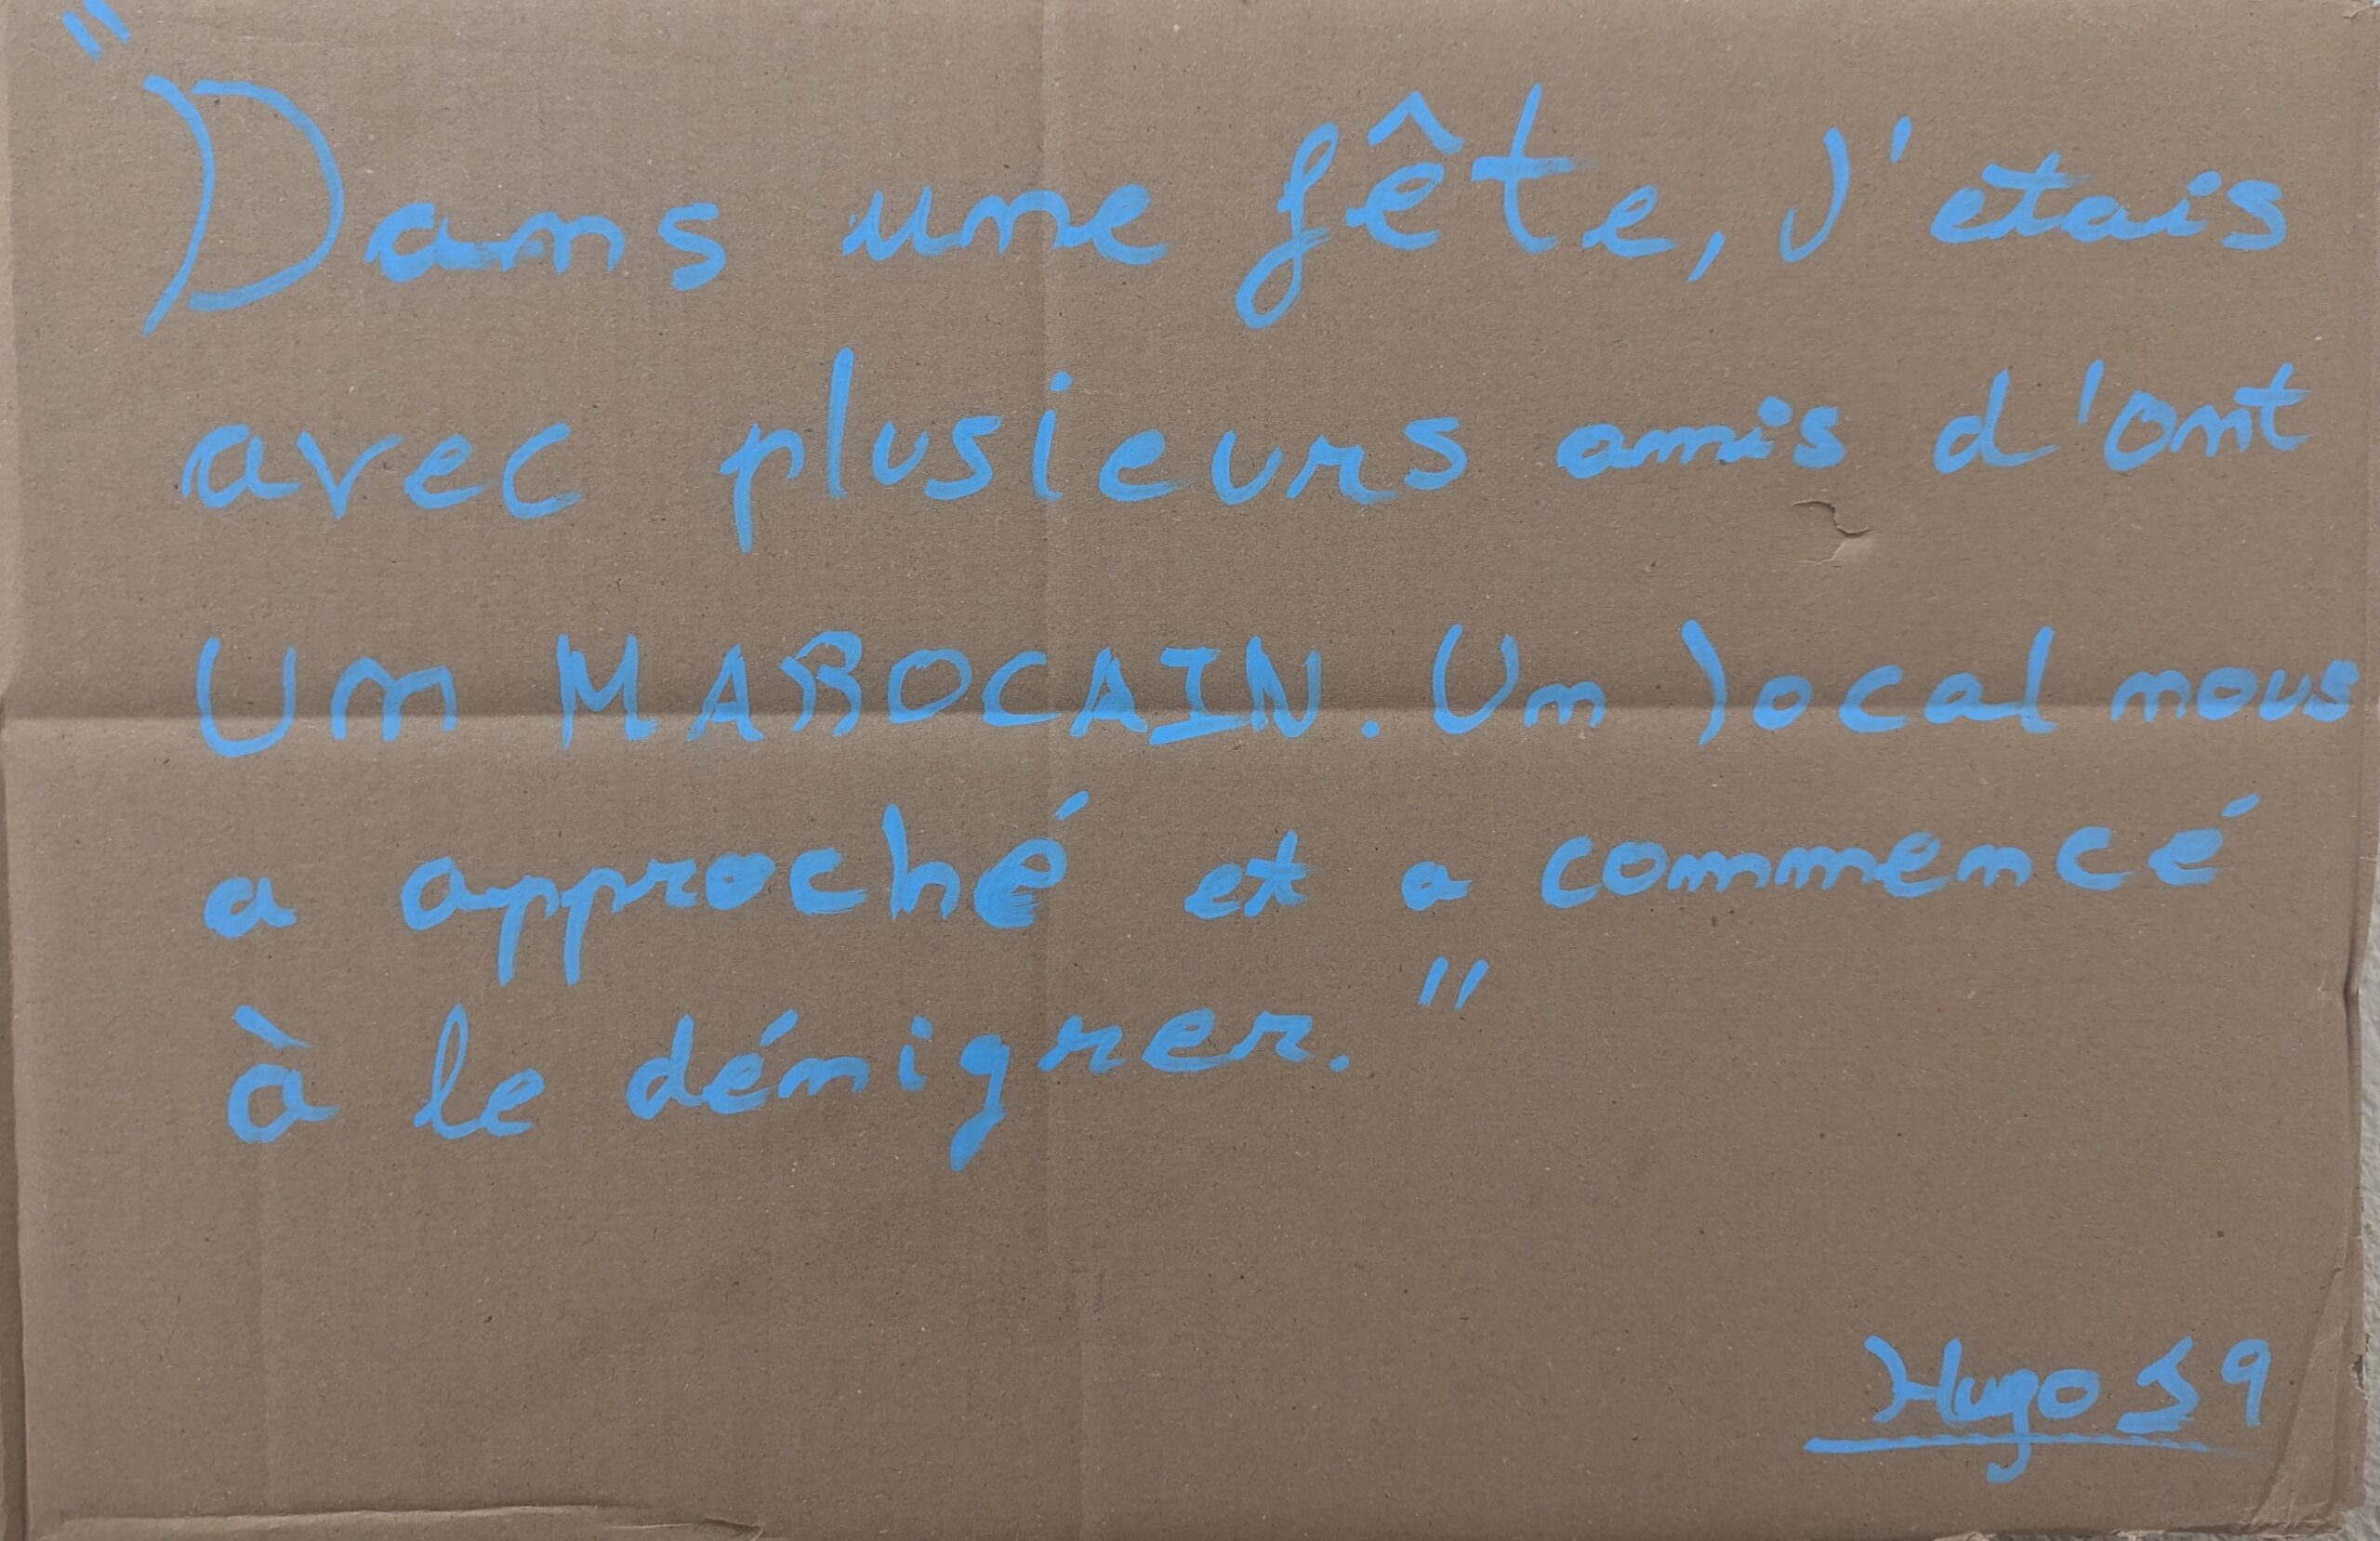 "Dans une fête, J'etais
avec plusieurs amis d'ont
Un MAROCAIN. Un local nous
a approché et a commencé
à le dénigrer."
Hugo S9